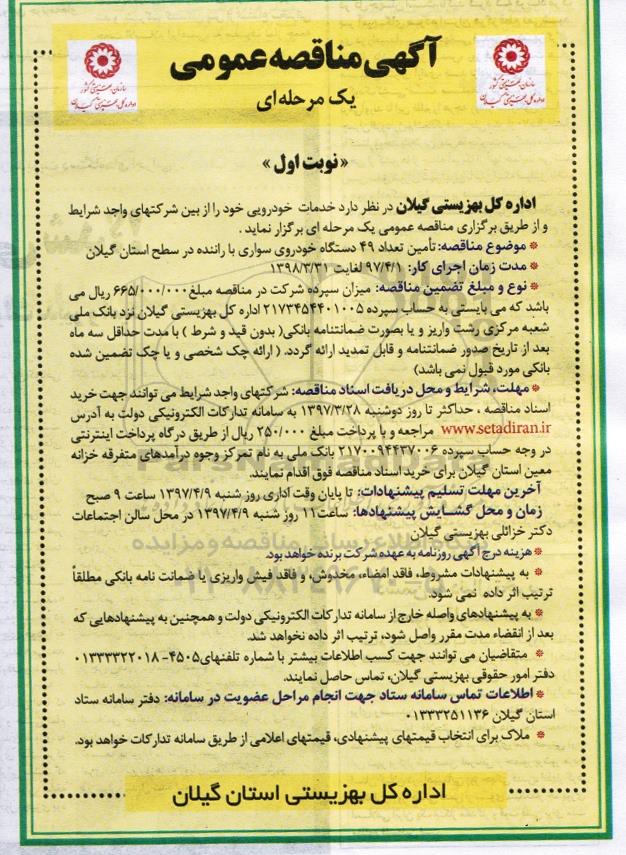 آگهی مناقصه عمومی
یک مرحله ای
سازمان بهزیستی کشور
اداره کل بهزیستی گیلان
سازمان بهزیستی کشور
اداره کل بهزیستی گیلان
«نوبت اول»
اداره کل بهزیستی گیلان در نظر دارد خدمات خودرویی خود را از بین شرکتهای واجد شرایط
و از طریق برگزاری مناقصه عمومی یک مرحله ای برگزار نماید .
* موضوع مناقصه: تأمین تعداد ۴۹ دستگاه خودروی سواری با راننده در سطح استان گیلان
* مدت زمان اجرای کار: ۹۷/۴/۱ لغایت ۱۳۹۸/۳/۳۱
* نوع و مبلغ تضمین مناقصه: میزان سپرده شرکت در مناقصه مبلغ ۶۶۵/۰۰۰/۰۰۰ ریال می
باشد که می بایستی به حساب سپرده ۲۱۷۳۴۵۴۴۰۱۰۰۵ اداره کل بهزیستی گیلان نزد بانک ملی
شعبه مرکزی رشت واریز و یا بصورت ضمانتنامه بانکی( بدون قید و شرط ) با مدت حداقل سه ماه
بعد از تاریخ صدور ضمانتنامه و قابل تمدید ارائه گردد. ( ارائه چک شخصی و یا چک تضمین شده
بانکی مورد قبول نمی باشد)
* مهلت، شرایط و محل دریافت اسناد مناقصه: شرکتهای واجد شرایط می توانند جهت خرید
اسناد مناقصه ، حداکثر تا روز دوشنبه ۱۳۹۷/۳/۲۸ به سامانه تدارکات الکترونیکی دولت به آدرس
www.setadiran.ir مراجعه و با پرداخت مبلغ ۲۵۰/۰۰۰ ریال از طریق درگاه پرداخت اینترنتی
در وجه حساب سپرده ۲۱۷۰۰۹۴۴۳۷۰۰۶ بانک ملی به نام تمرکز وجوه درآمدهای متفرقه خزانه
معین استان گیلان برای خرید اسناد مناقصه فوق اقدام نمایند.
آخرین مهلت تسلیم پیشنهادات: تا پایان وقت اداری روز شنبه ۱۳۹۷/۴/۹ ساعت ۹ صبح
زمان و محل گشایش پیشنهادها: ساعت۱۱ روز شنبه ۱۳۹۷/۴/۹ در محل سالن اجتماعات
دکتر خزائلی بهزیستی گیلان
* هزینه درج آگهی روزنامه به عهده شرکت برنده خواهد بود.
* به پیشنهادات مشروط، فاقد امضاء، مخدوش، و فاقد فیش واریزی یا ضمانت نامه بانکی مطلقاً
ترتیب اثر داده نمی شود.
* به پیشنهادهای واصله خارج از سامانه تدارکات الکترونیکی دولت و همچنین به پیشنهادهایی که
بعد از انقضاء مدت مقرر واصل شود، ترتیب اثر داده نخواهد شد.
* متقاضیان می توانند جهت کسب اطلاعات بیشتر با شماره تلفنهای۴۵۰۵- ۰۱۳۳۳۳۲۲۰۱۸
دفتر امور حقوقی بهزیستی گیلان، تماس حاصل نمایند.
* اطلاعات تماس سامانه ستاد جهت انجام مراحل عضویت در سامانه: دفتر سامانه ستاد
استان گیلان ۰۱۳۳۳۲۵۱۱۳۶
* ملاک برای انتخاب قیمتهای پیشنهادی، قیمتهای اعلامی از طریق سامانه تدارکات خواهد بود.
اداره کل بهزیستی استان گیلان